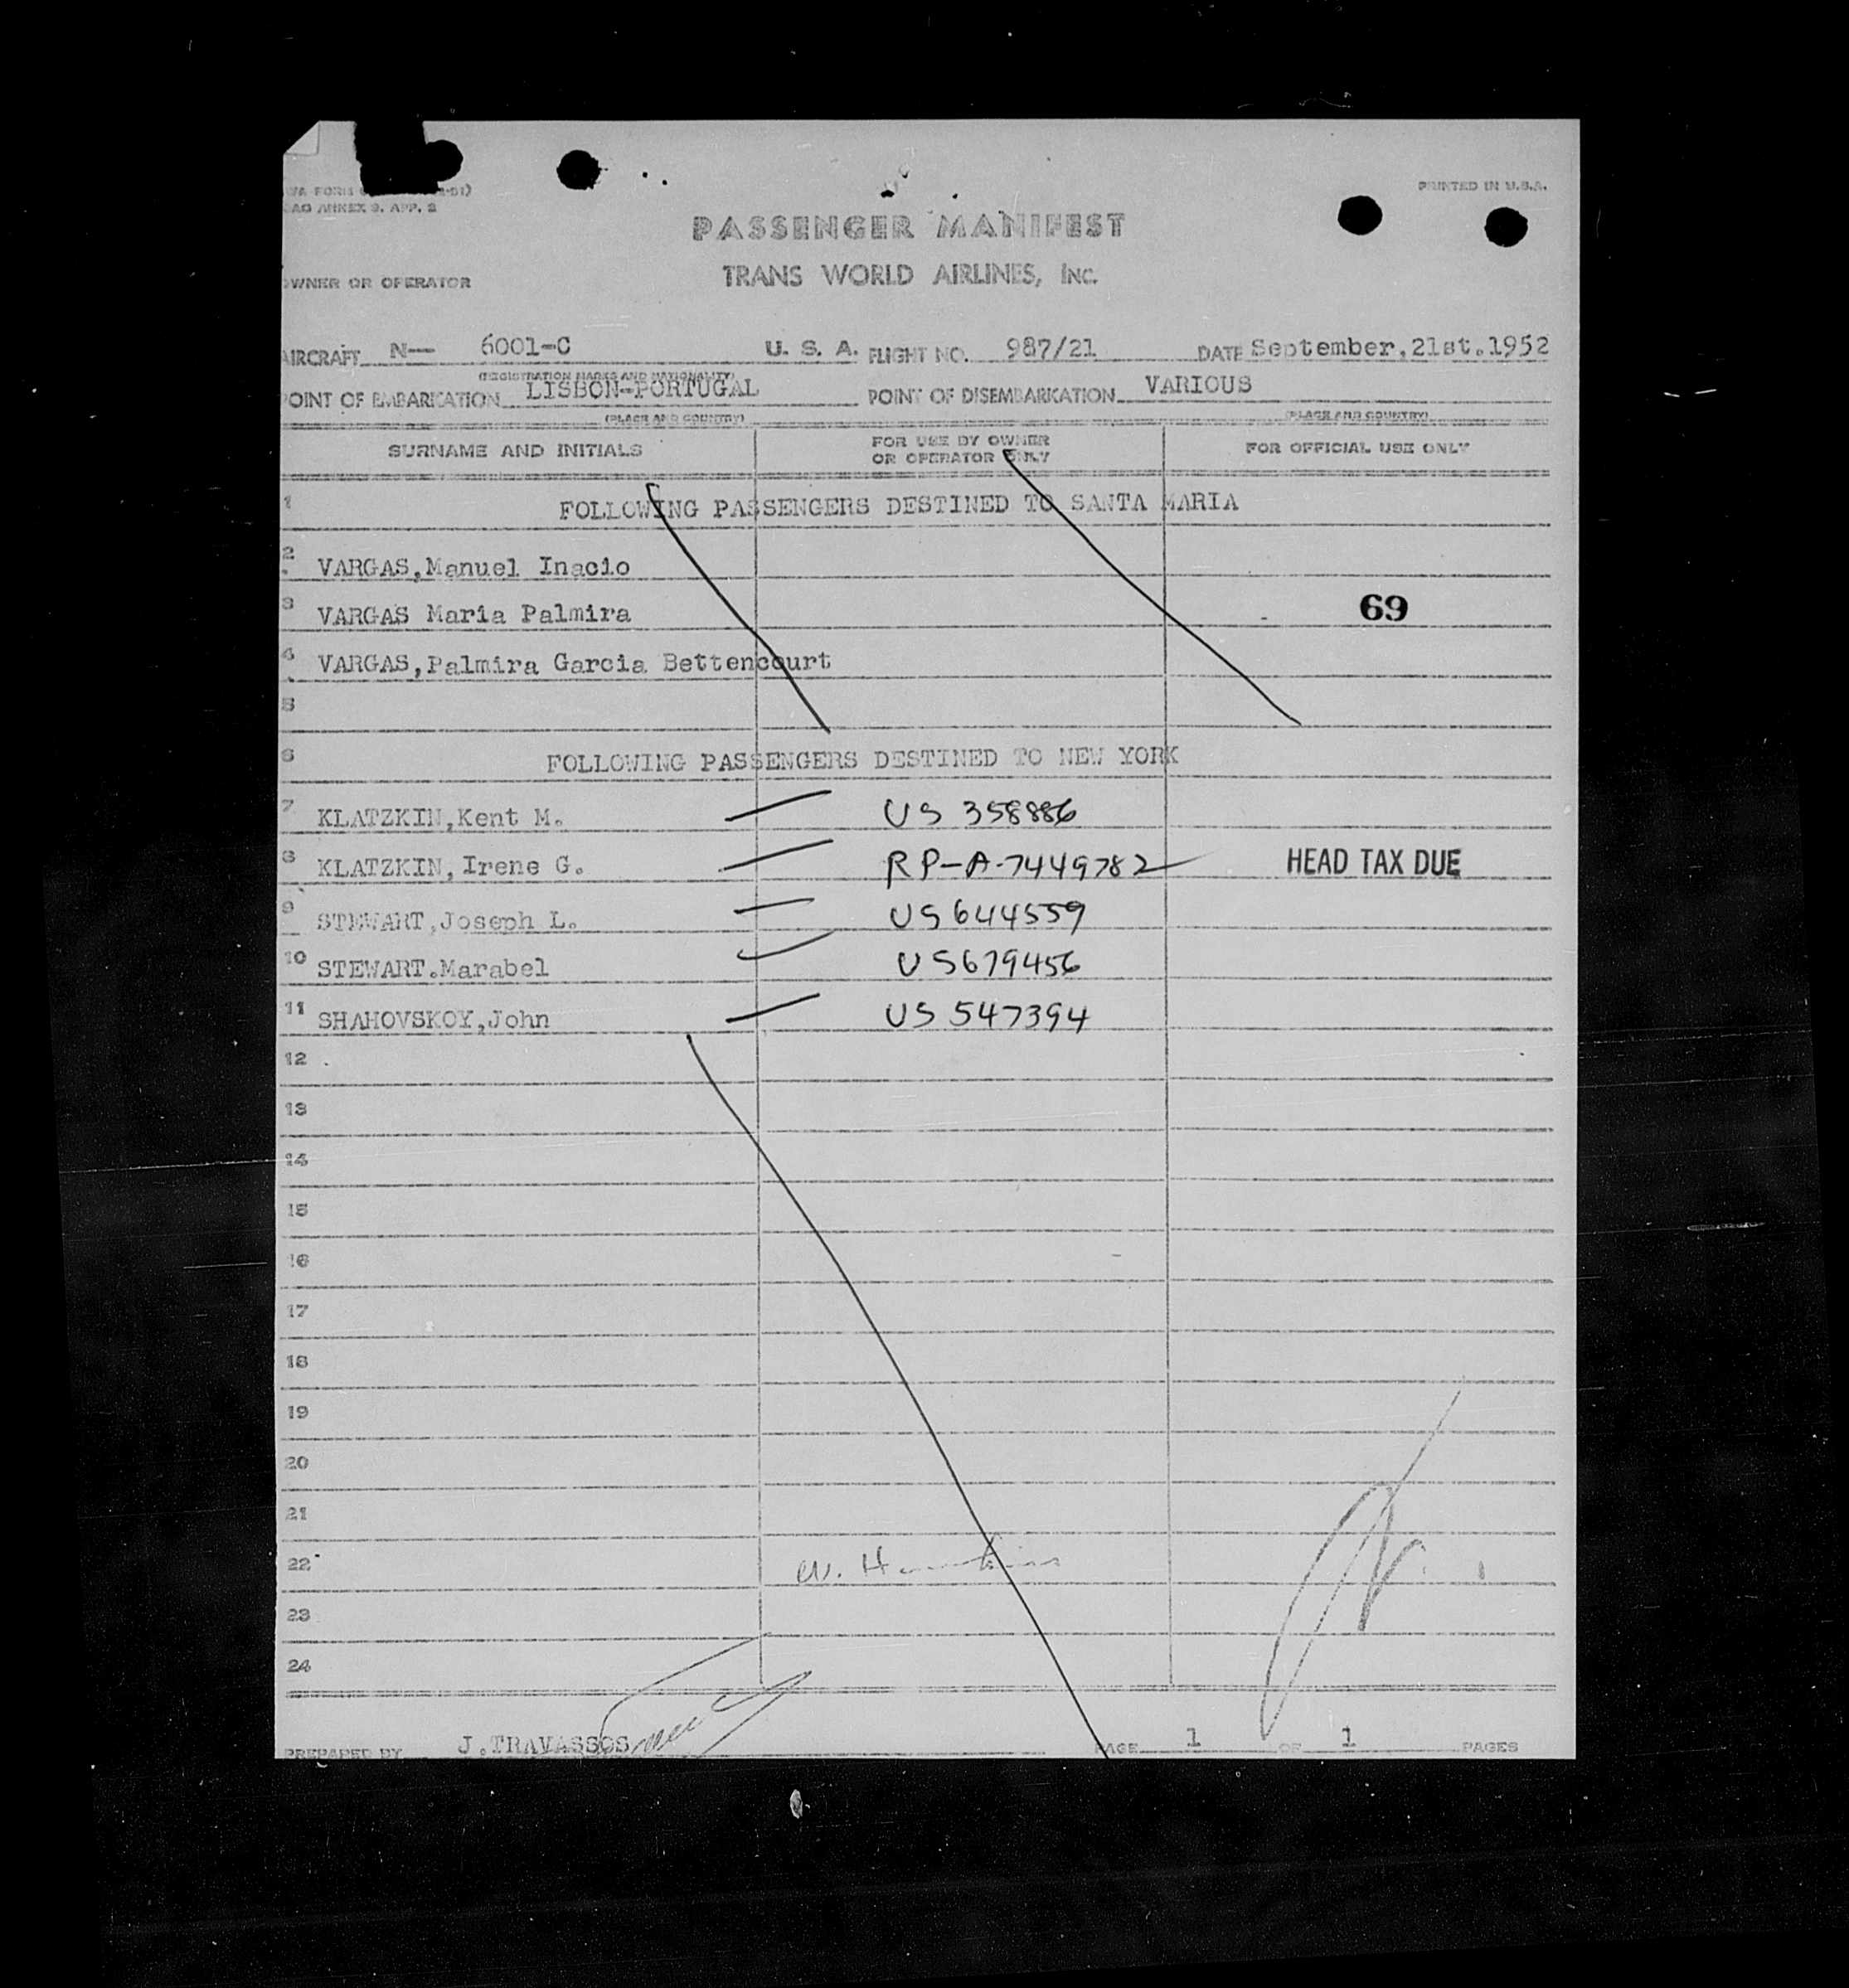 PRINTED IN U.S.A.
ANNEX 9, APP. 2
PASSENGER MANIFEST
OWNER OR OPERATOR TRANS WORLD AIRLINES, INC.
AIRCRAFT N— 6001-C U. S. A. FLIGHT NO. 987/21 DATE September,21st.1952
(REGISTRATION MARKS AND NATIONALITY)
POINT OF EMBARKATION LISBON-PORTUGAL POINT OF DISEMBARKATION VARIOUS
(PLACE AND COUNTRY) (PLACE AND COUNTRY)
SURNAME AND INITIALS FOR USE BY OWNER OR OPERATOR ONLY FOR OFFICIAL USE ONLY
1 FOLLOWING PASSENGERS DESTINED TO SANTA MARIA
2 VARGAS,Manuel Inacio
3 VARGAS Maria Palmira 69
4 VARGAS,Palmira Garcia Bettencourt
5
6 FOLLOWING PASSENGERS DESTINED TO NEW YORK
7 KLATZKIN,Kent M. US 358886
8 KLATZKIN,Irene G. RP-A-7449782 HEAD TAX DUE
9 STEWART,Joseph L. US 644559
10 STEWART.Marabel US679456
11 SHAHOVSKOY,John US 547394
12
13
14
15
16
17
18
19
20
21
22 W.
23
24
PREPARED BY J.TRAVASSOS PAGE 1 OF 1 PAGES